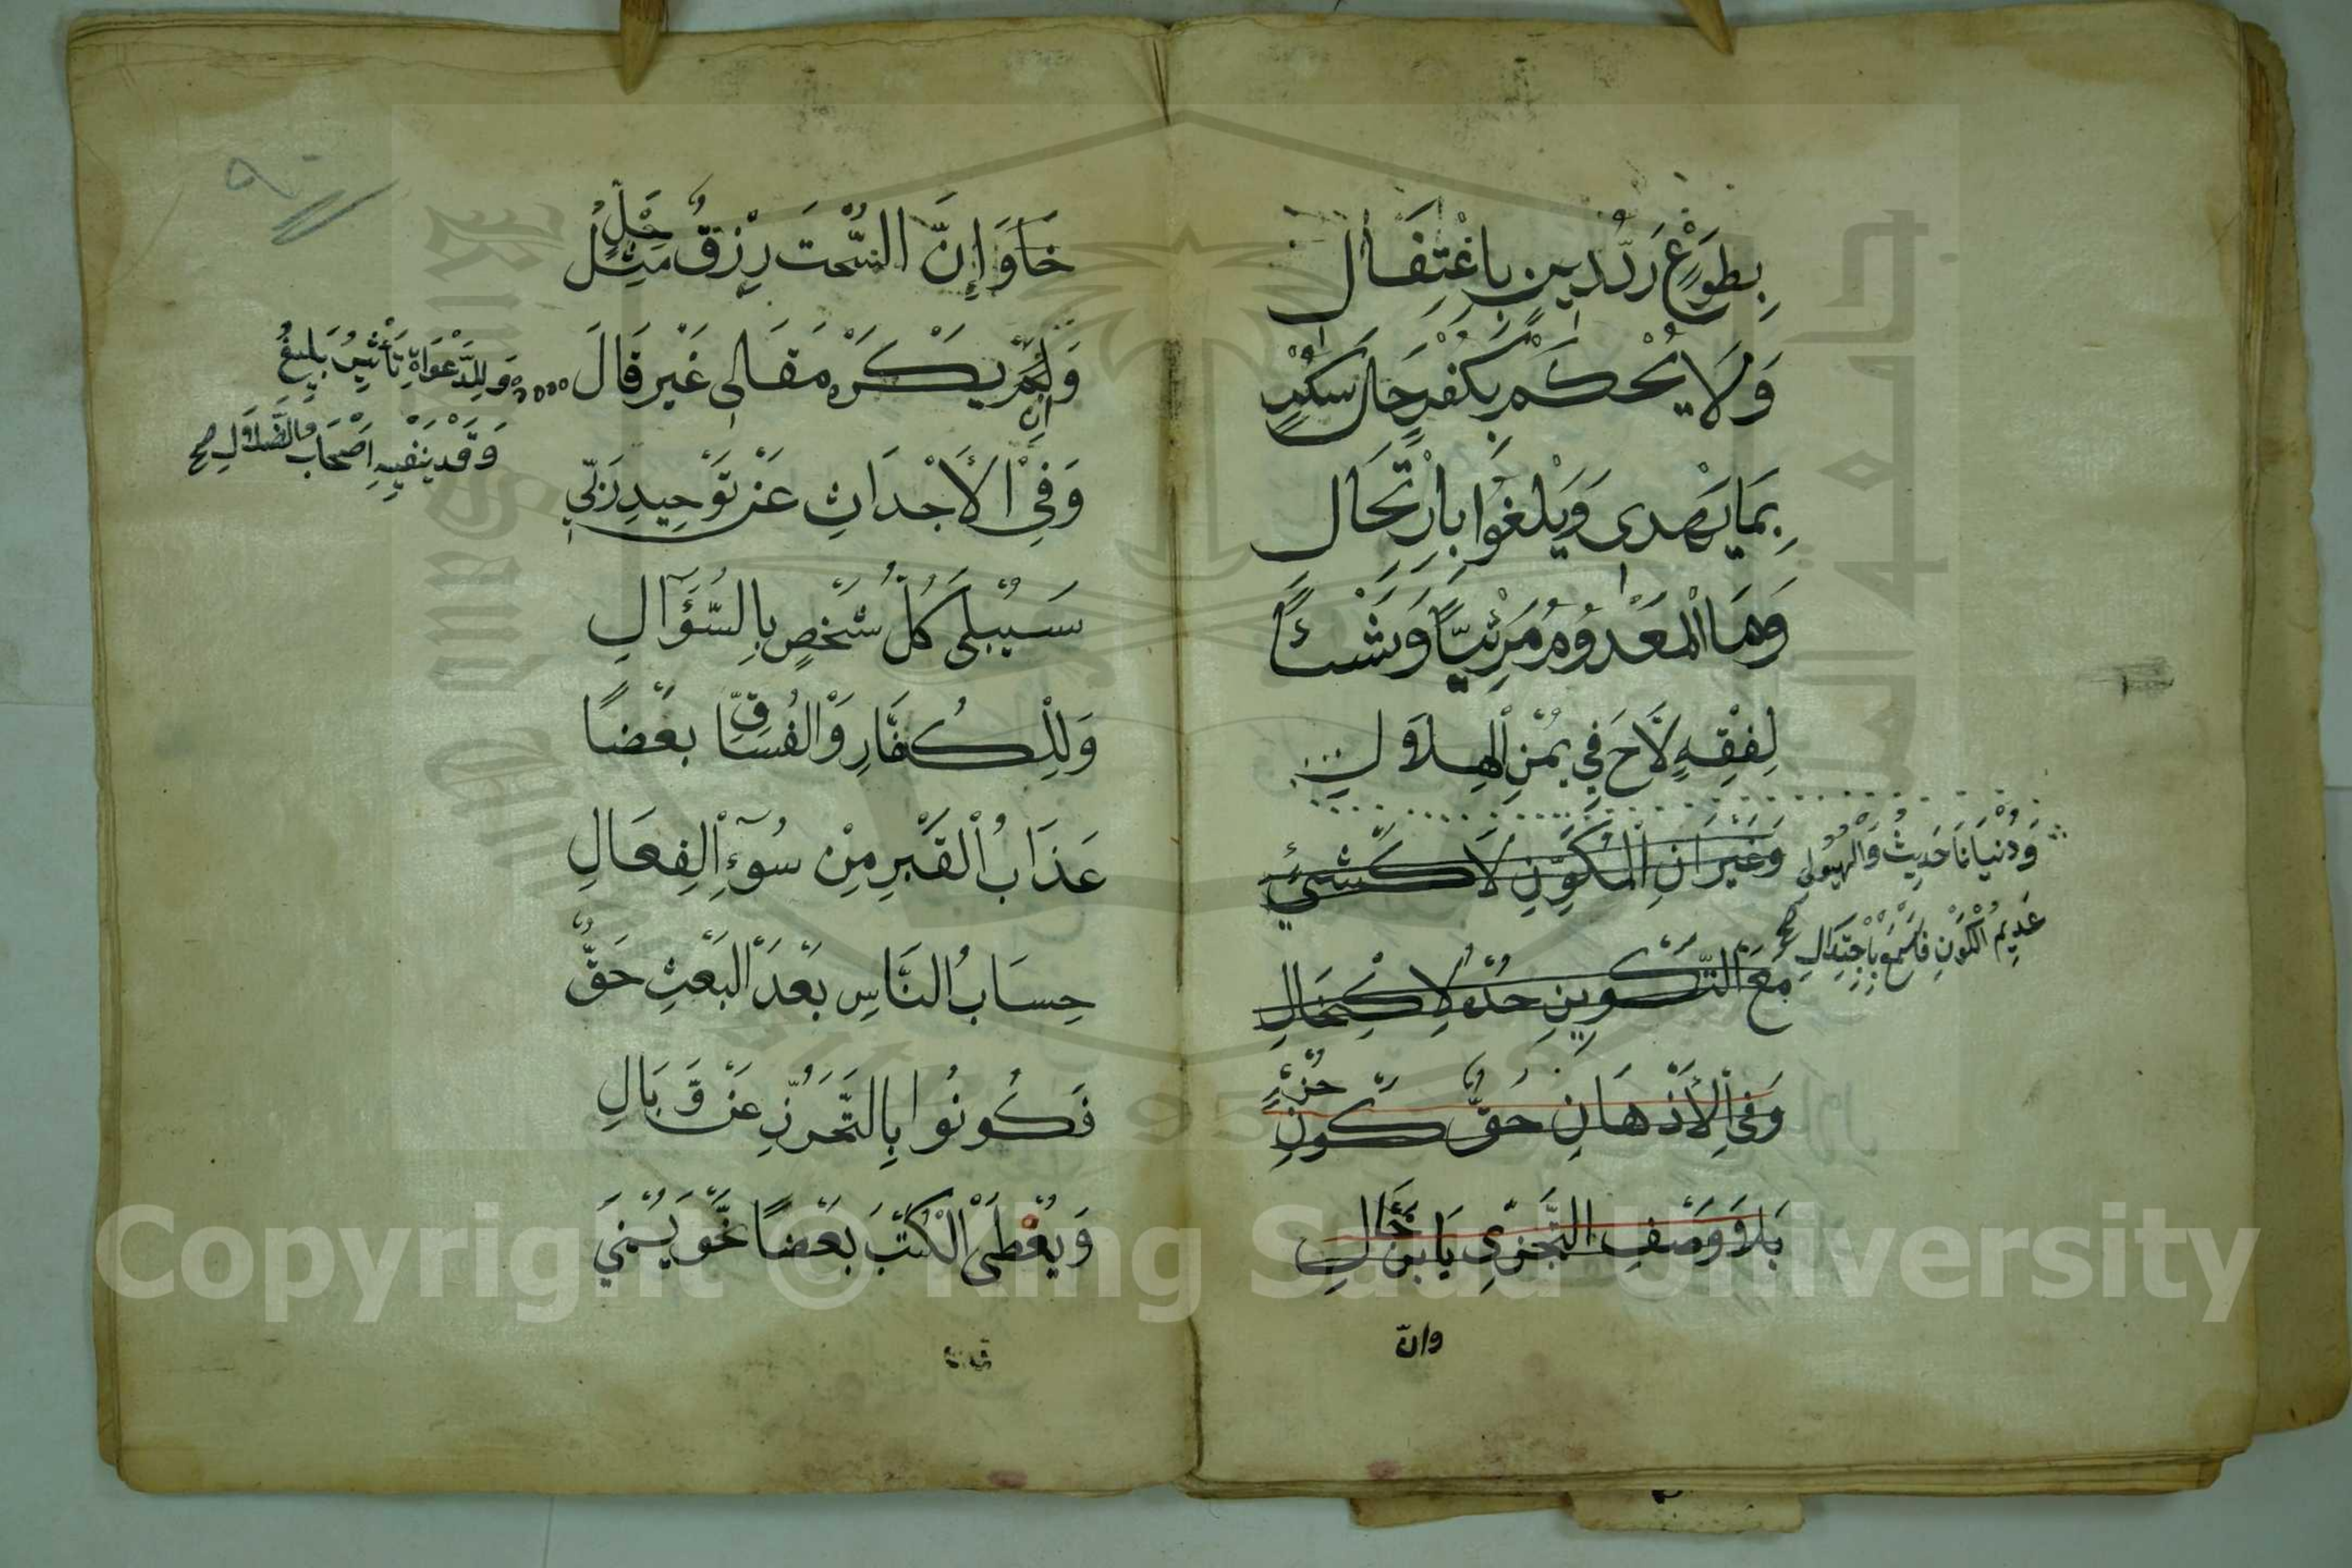 بِطَوْعٍ رَدُّ دِينٍ بِاغْتِفَالِ
وَلَا يُحْكَمْ بِكُفْرٍ حَالَ سُكْرٍ
بِمَا يَهْذِى وَيَلْغُوا بِارْتِجَالِ
وَمَا الْمَعْدُومُ مَرْئِيًّا وَشَيْئًا
لِفِقْهٍ لَاحَ فِي يُمْنِ الْهِلَالِ
وَغَيْرَانِ الْمُكَوَّنِ لَا كَشَيْءٍ
مَعَ التَّكْوِينِ خُذْهُ لِاكْتِحَالِ
وَدُنْيَانَا حَدِيثٌ وَالْهَيُولَى
عَدِيمُ الْكَوْنِ فَاسْمَعْ بِاجْتِذَالِ صح
وَفِي الْأَذْهَانِ حَقٌّ كَوْنُ جُزْءٍ
بِلَا وَصْفِ التَّجَزِّى يَا ابْنَ خَالِ
وانّ
٩٠
وَإِنَّ السُّحْتَ رِزْقٌ مِثْلُ حِلٍّ
وَإِنْ يَكْرَهْ مَقَالِى غَيْرَ قَالَ
وَلِلدَّعْوَاةِ تَأْثِيرٌ بَلِيغٌ
وَقَدْ يَنْفِيهِ أَصْحَابُ الضَّلَالِ صح
وَفِي الْأَجْدَاثِ عَنْ تَوْحِيدِ رَبِّي
سَيُبْلَى كُلُّ شَخْصٍ بِالسُّؤَالِ
وَلِلْكُفَّارِ وَالْفُسَّاقِ بَعْضًا
عَذَابُ الْقَبْرِ مِنْ سُوءِ الْفِعَالِ
حِسَابُ النَّاسِ بَعْدَ الْبَعْثِ حَقٌّ
فَكُونُوا بِالتَّحَرُّزِ عَنْ وَبَالِ
وَيُعْطَى الْكُتْبَ بَعْضًا نَحْوَ يُمْنَى
Copyright © King Saud University